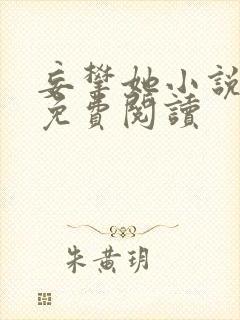 妄攀她小說
免費閱讀
朱黃玥